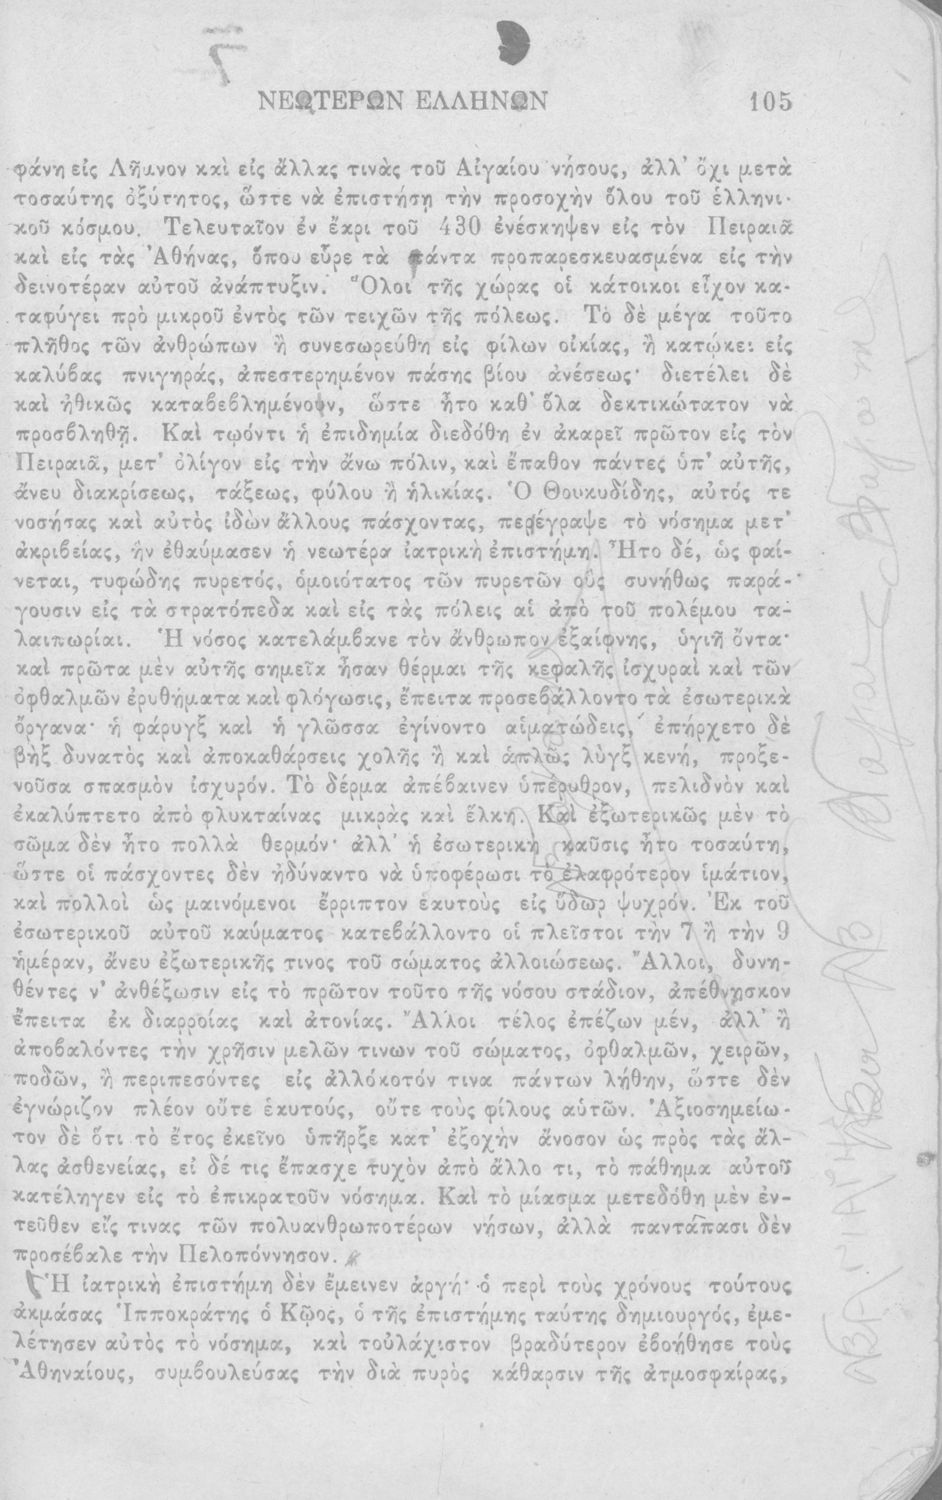 ΝΕΩΤΕΡΩΝ ΕΛΛΗΝΩΝ 105
φάνη εἰς Λῆμνον καὶ εἰς ἄλλας τινὰς τοῦ Αἰγαίου νήσους, ἀλλ’ ὄχι μετὰ
τοσαύτης ὀξύτητος, ὥστε νὰ ἐπιστήσῃ τὴν προσοχὴν ὅλου τοῦ ἑλληνι-
κοῦ κόσμου. Τελευταῖον ἐν ἔαρι τοῦ 430 ἐνέσκηψεν εἰς τὸν Πειραιᾶ
καὶ εἰς τὰς Ἀθήνας, ὅπου εὗρε τὰ πάντα προπαρεσκευασμένα εἰς τὴν
δεινοτέραν αὐτοῦ ἀνάπτυξιν. Ὅλοι τῆς χώρας οἱ κάτοικοι εἶχον κα-
ταφύγει πρὸ μικροῦ ἐντὸς τῶν τειχῶν τῆς πόλεως. Τὸ δὲ μέγα τοῦτο
πλῆθος τῶν ἀνθρώπων ἢ συνεσωρεύθη εἰς φίλων οἰκίας, ἢ κατῴκει εἰς
καλύβας πνιγηράς, ἀπεστερημένον πάσης βίου ἀνέσεως· διετέλει δὲ
καὶ ἠθικῶς καταβεβλημένον, ὥστε ἦτο καθ’ ὅλα δεκτικώτατον νὰ
προσβληθῇ. Καὶ τῳόντι ἡ ἐπιδημία διεδόθη ἐν ἀκαρεῖ πρῶτον εἰς τὸν
Πειραιᾶ, μετ’ ὀλίγον εἰς τὴν ἄνω πόλιν, καὶ ἔπαθον πάντες ὑπ’ αὐτῆς,
ἄνευ διακρίσεως, τάξεως, φύλου ἢ ἡλικίας. Ὁ Θουκυδίδης, αὐτός τε
νοσήσας καὶ αὐτὸς ἰδὼν ἄλλους πάσχοντας, περιέγραψε τὸ νόσημα μετ’
ἀκριβείας, ἣν ἐθαύμασεν ἡ νεωτέρα ἰατρικὴ ἐπιστήμη. Ἦτο δέ, ὡς φαί-
νεται, τυφώδης πυρετός, ὁμοιότατος τῶν πυρετῶν οὓς συνήθως παρά-
γουσιν εἰς τὰ στρατόπεδα καὶ εἰς τὰς πόλεις αἱ ἀπὸ τοῦ πολέμου τα-
λαιπωρίαι. Ἡ νόσος κατελάμβανε τὸν ἄνθρωπον ἐξαίφνης, ὑγιῆ ὄντα·
καὶ πρῶτα μὲν αὐτῆς σημεῖα ἦσαν θέρμαι τῆς κεφαλῆς ἰσχυραὶ καὶ τῶν
ὀφθαλμῶν ἐρυθήματα καὶ φλόγωσις, ἔπειτα προσεβάλλοντο τὰ ἐσωτερικὰ
ὄργανα· ἡ φάρυγξ καὶ ἡ γλῶσσα ἐγίνοντο αἱματώδεις, ἐπήρχετο δὲ
βὴξ δυνατὸς καὶ ἀποκαθάρσεις χολῆς ἢ καὶ ἁπλῶς λὺγξ κενή, προξε-
νοῦσα σπασμὸν ἰσχυρόν. Τὸ δέρμα ἀπέβαινεν ὑπέρυθρον, πελιδνὸν καὶ
ἐκαλύπτετο ἀπὸ φλυκταίνας μικρὰς καὶ ἕλκη. Καὶ ἐξωτερικῶς μὲν τὸ
σῶμα δὲν ἦτο πολλὰ θερμόν· ἀλλ’ ἡ ἐσωτερικὴ καῦσις ἦτο τοσαύτη,
ὥστε οἱ πάσχοντες δὲν ἠδύναντο νὰ ὑποφέρωσι τὸ ἐλαφρότερον ἱμάτιον,
καὶ πολλοὶ ὡς μαινόμενοι ἔρριπτον ἑαυτοὺς εἰς ὕδωρ ψυχρόν. Ἐκ τοῦ
ἐσωτερικοῦ αὐτοῦ καύματος κατεβάλλοντο οἱ πλεῖστοι τὴν 7 ἢ τὴν 9
ἡμέραν, ἄνευ ἐξωτερικῆς τινος τοῦ σώματος ἀλλοιώσεως. Ἄλλοι, δυνη-
θέντες ν’ ἀνθέξωσιν εἰς τὸ πρῶτον τοῦτο τῆς νόσου στάδιον, ἀπέθνησκον
ἔπειτα ἐκ διαρροίας καὶ ἀτονίας. Ἄλλοι τέλος ἐπέζων μέν, ἀλλ’ ἢ
ἀποβαλόντες τὴν χρῆσιν μελῶν τινων τοῦ σώματος, ὀφθαλμῶν, χειρῶν,
ποδῶν, ἢ περιπεσόντες εἰς ἀλλόκοτόν τινα πάντων λήθην, ὥστε δὲν
ἐγνώριζον πλέον οὔτε ἑαυτούς, οὔτε τοὺς φίλους αὑτῶν. Ἀξιοσημείω-
τον δὲ ὅτι τὸ ἔτος ἐκεῖνο ὑπῆρξε κατ’ ἐξοχὴν ἄνοσον ὡς πρὸς τὰς ἄλ-
λας ἀσθενείας, εἰ δέ τις ἔπασχε τυχὸν ἀπὸ ἄλλο τι, τὸ πάθημα αὐτοῦ
κατέληγεν εἰς τὸ ἐπικρατοῦν νόσημα. Καὶ τὸ μίασμα μετεδόθη μὲν ἐν-
τεῦθεν εἴς τινας τῶν πολυανθρωποτέρων νήσων, ἀλλὰ παντάπασι δὲν
προσέβαλε τὴν Πελοπόννησον.
Ἡ ἰατρικὴ ἐπιστήμη δὲν ἔμεινεν ἀργή· ὁ περὶ τοὺς χρόνους τούτους
ἀκμάσας Ἱπποκράτης ὁ Κῷος, ὁ τῆς ἐπιστήμης ταύτης δημιουργός, ἐμε-
λέτησεν αὐτὸς τὸ νόσημα, καὶ τοὐλάχιστον βραδύτερον ἐβοήθησε τοὺς
Ἀθηναίους, συμβουλεύσας τὴν διὰ πυρὸς κάθαρσιν τῆς ἀτμοσφαίρας,